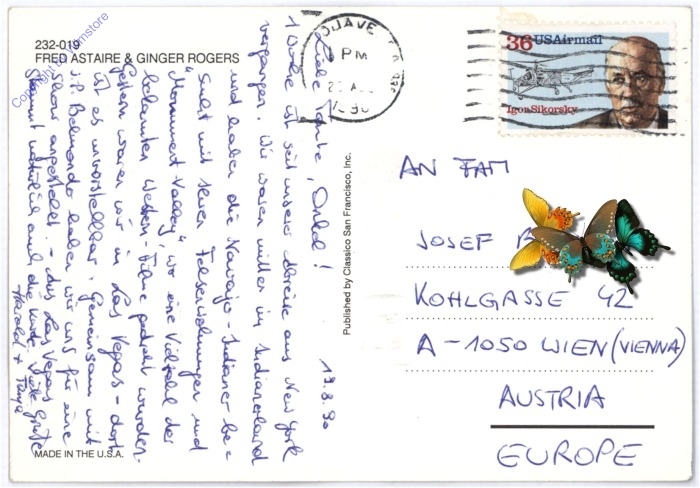 232-019
FRED ASTAIRE & GINGER ROGERS
Copyright by hamstore
Liebe Tante, Onkel!
19.8.90
1 Woche ist seit unserer Abreise aus New York
vergangen. Wir waren mitten im Indianerland
und haben die Navajo-Indianer be=
sucht mit ihren Felsenwohnungen und
"Monument Valley", wo eine Vielzahl der
bekannten Western-Filme gedreht wurden.
Gestern waren wir in Las Vegas - dort
ist es unvorstellbar. Gemeinsam mit
J.P. Belmondo haben wir uns für eine
Show angestellt. - aus Las Vegas
stammt natürlich auch die Karte. Viele Grüße
Harald + Tanja
MADE IN THE U.S.A.
Published by Classico San Francisco, Inc.
PM
1990
36 USAirmail
Igor Sikorsky
AN FAM
JOSEF
KOHLGASSE 42
A-1050 WIEN (VIENNA)
AUSTRIA
EUROPE